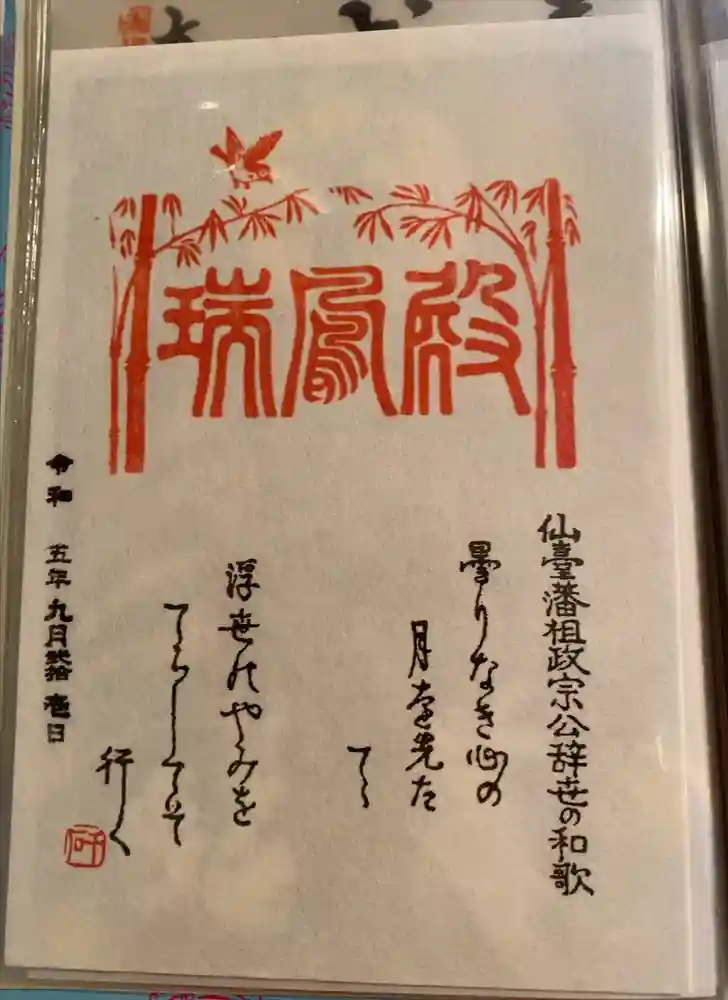 瑞鳳殿
仙臺藩祖政宗公辞世の和歌
曇りなき心の
月を先た
てゝ
浮世のやみを
てらしてそ
行く
令和 五年九月弐拾壱日